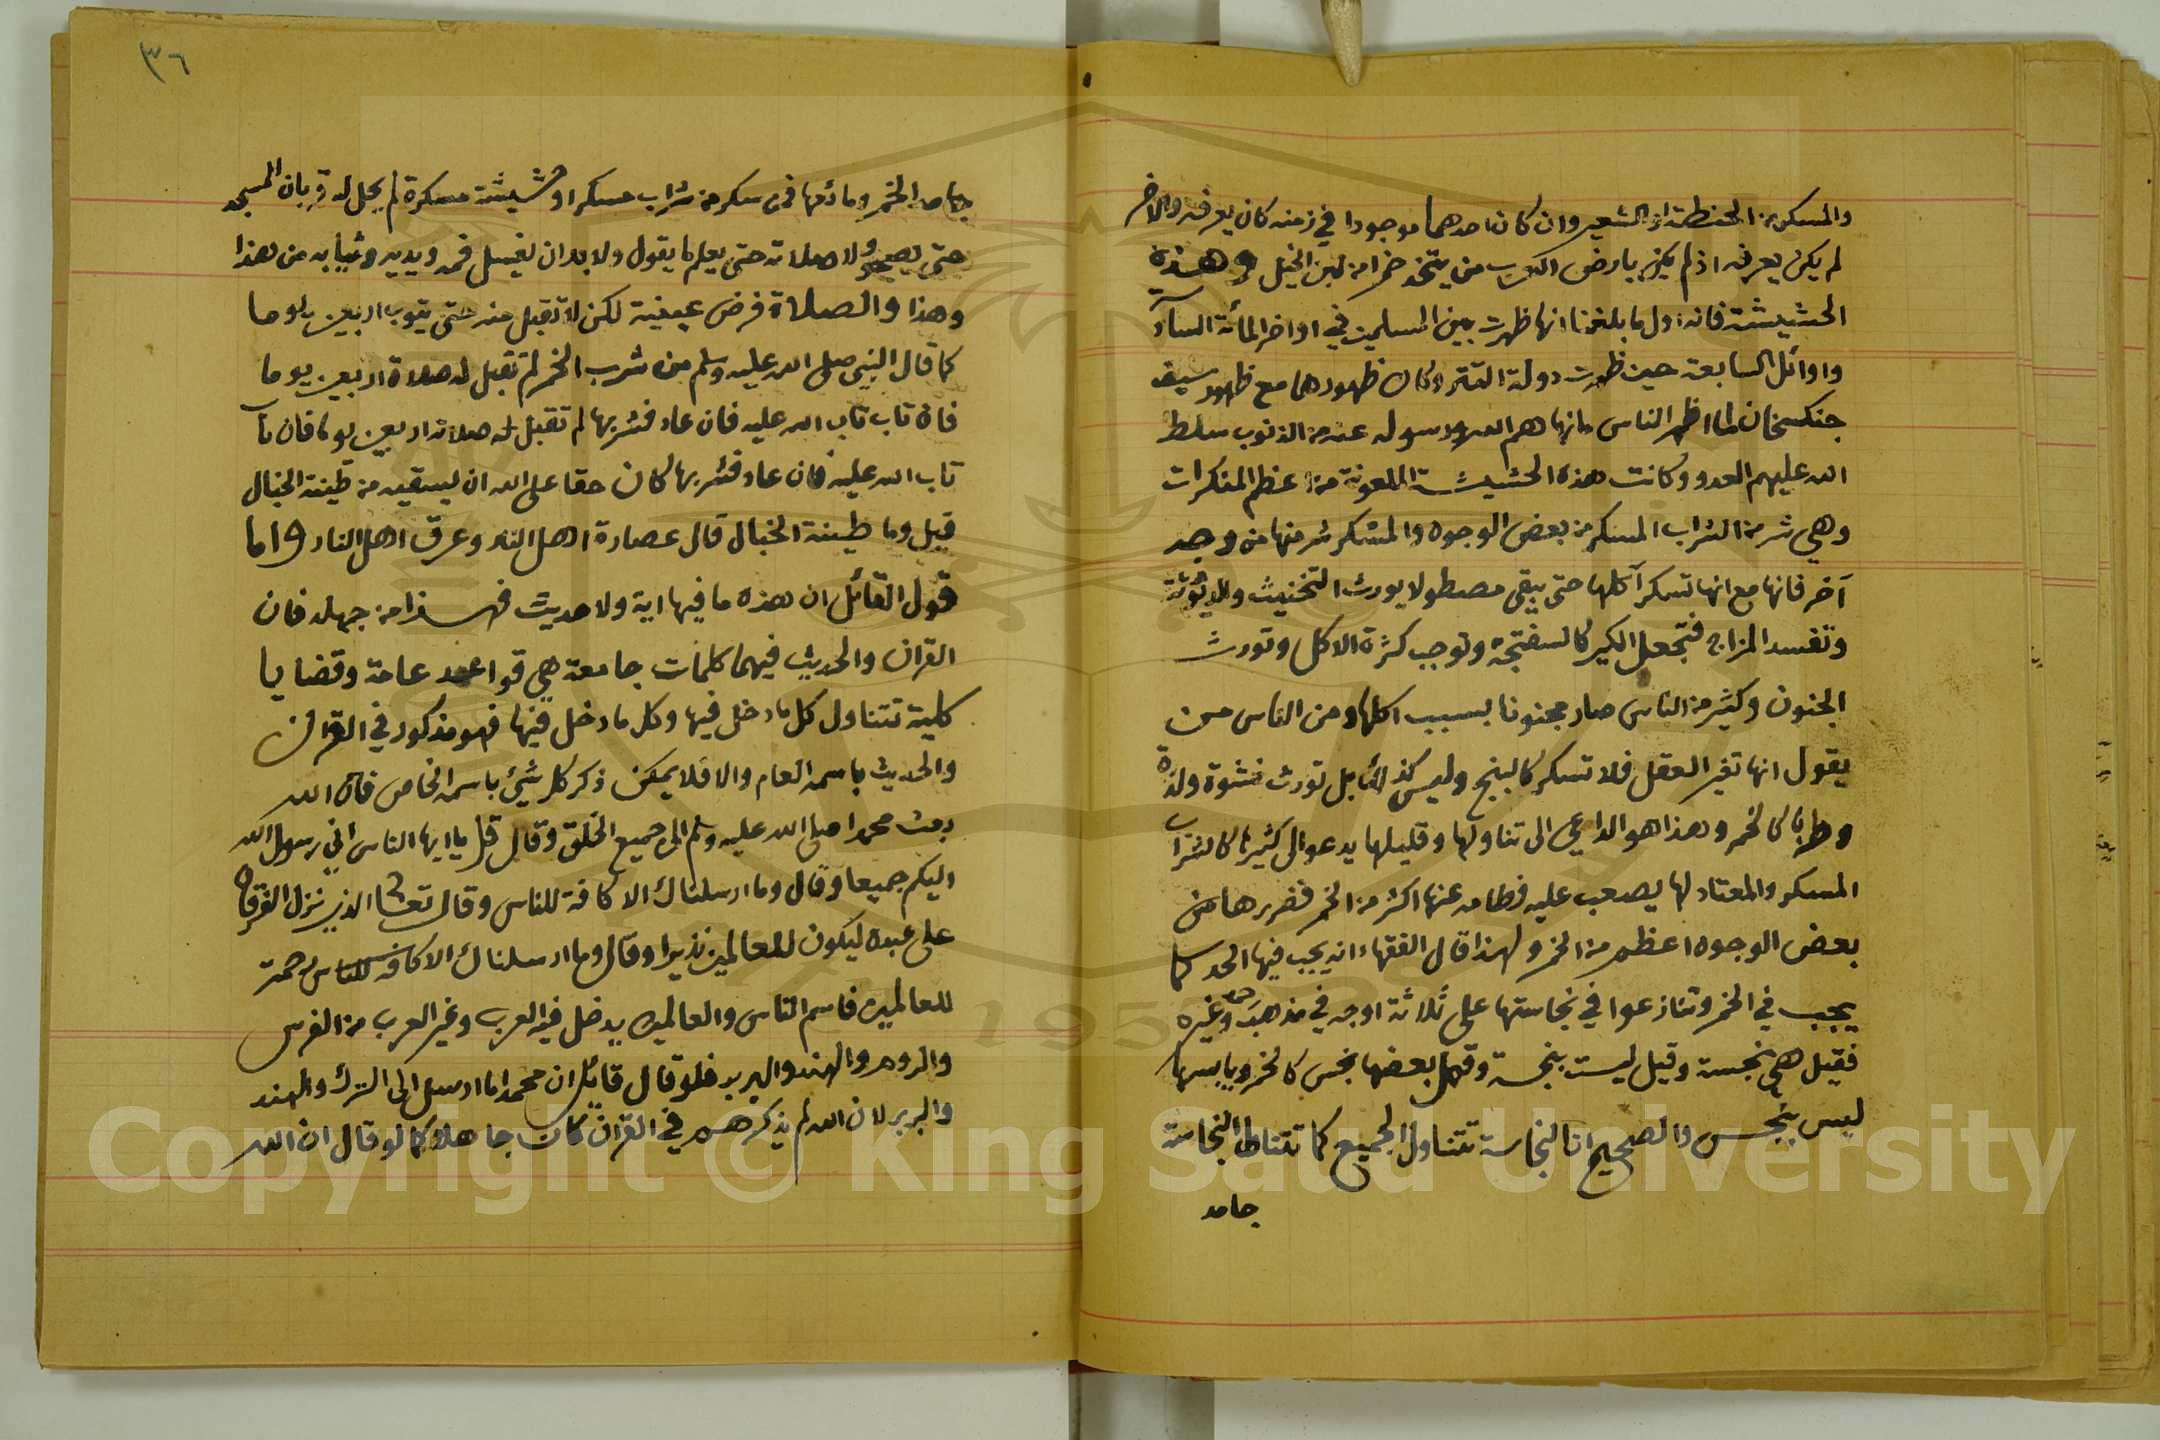 والمسكر من الحنطة او الشعير وان كان احدهما موجودا في زمنه كان يعرفه والاخر
لم يكن يعرفه اذ لم يكن بارض العرب من يتخذ خمرا من لبن الخيل وهذه
الحشيشة فانه اول ما بلغنا انها ظهرت بين المسلمين في اواخر المائة السا
واوائل السابعة حين ظهرت دولة التتر وكان ظهورها مع ظهور سيف
جنكسخان لما اظهر الناس ما نهاهم الله ورسوله عنه من الذنوب سلط
الله عليهم العدو وكانت هذه الحشيشة الملعونة من اعظم المنكرات
وهي شر من الشراب المسكر من بعض الوجوه والمسكر شر منها من وجه
آخر فانها مع انها تسكر آكلها حتى يبقى مصطولا يورث التخنيث والديوثة
وتفسد المزاج فتجعل الكبير كالسفتجة وتوجب كثرة الاكل وتورث
الجنون وكثير من الناس صار مجنونا بسبب اكلها ومن الناس من
يقول انها تغير العقل فلا تسكر كالبنج وليس كذلك بل تورث نشوة ولذة
وطربا كالخمر وهذا هو الداعي الى تناولها وقليلها يدعو الى كثيرها كالشراب
المسكر والمعتاد لها يصعب عليه فطامه عنها اكثر من الخمر فضررها من
بعض الوجوه اعظم من الخمر ولهذا قال الفقهاء انه يجب فيها الحد كما
يجب في الخمر وتنازعوا في نجاستها على ثلاثة اوجه في مذهب وغيره
فقيل هي نجسة وقيل ليست بنجسة وقيل بعضها نجس كالخمر ويابسها
ليس بنجس والصحيح ان النجاسة تتناول الجميع كما تتناول النجاسة
جامد
٣٦
جامد الخمر ومائعها فمن سكر من شراب مسكر او حشيشة مسكرة لم يحل له قربان المسجد
حتى يصحو ولا صلاته حتى يعلم ما يقول ولا بد ان يغسل فمه ويديه وثيابه من هذا
وهذا والصلاة فرض عينية لكن لا تقبل منه حتى يتوب اربعين يوما
كما قال النبي صلى الله عليه وسلم من شرب الخمر لم تقبل له صلاة اربعين يوما
فان تاب تاب الله عليه فان عاد فشربها لم تقبل له صلاة اربعين يوما فان تاب
تاب الله عليه فان عاد فشربها كان حقا على الله ان يسقيه من طينة الخبال
قيل وما طينة الخبال قال عصارة اهل النار وعرق اهل النار واما
قول القائل ان هذه ما فيها اية ولا حديث فهذا من جهله فان
القران والحديث فيهما كلمات جامعة هي قواعد عامة وقضايا
كلية تتناول كل ما دخل فيها وكل ما دخل فيها فهو مذكور في القران
والحديث باسمه العام والا فلا يمكن ذكر كل شيئ باسمه الخاص فان الله
بعث محمدا صلى الله عليه وسلم الى جميع الخلق وقال قل يا ايها الناس اني رسول الله
اليكم جميعا وقال وما ارسلناك الا كافة للناس وقال تعالى الذي نزل الفرقان
على عبده ليكون للعالمين نذيرا وقال وما ارسلناك الا كافة للناس رحمة
للعالمين فاسم الناس والعالمين يدخل فيه العرب وغير العرب من الفرس
والروم والهند والبربر فلو قال قايل ان محمدا ما ارسل الى الترك والهند
والبربر لان الله لم يذكرهم في القران كان جاهلا وكما لو قال ان الله
Copyright © King Saud University